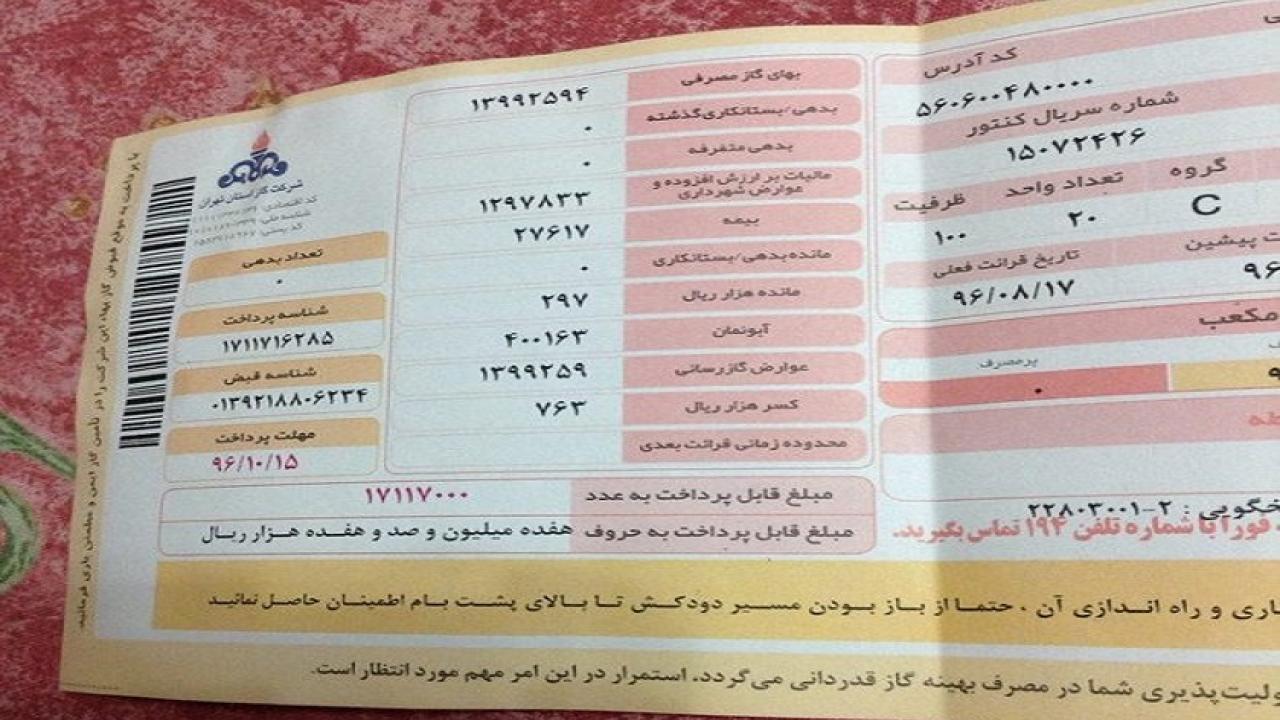 کد آدرس
۵۶۰۶۰۰۴۸۰۰۰۰
شماره سریال کنتور
۱۵۰۷۲۴۲۶
گروه تعداد واحد ظرفیت
C ۲۰ ۱۰۰
پیشین تاریخ قرائت فعلی
۹۶/۰۸/۱۷
مکعب
پرمصرف
۰
۲۲۸۰۳۰۰۱-۲
فورا با شماره تلفن ۱۹۴ تماس بگیرید.
بهای گاز مصرفی ۱۳۹۹۲۵۹۴
بدهی/بستانکاری گذشته ۰
بدهی متفرقه ۰
مالیات بر ارزش افزوده و
عوارض شهرداری ۱۲۹۷۸۳۳
بیمه ۲۷۶۱۷
مانده بدهی/بستانکاری ۰
مانده هزار ریال ۲۹۷
آبونمان ۴۰۰۱۶۳
عوارض گازرسانی ۱۳۹۹۲۵۹
کسر هزار ریال ۷۶۳
محدوده زمانی قرائت بعدی
شرکت گاز استان تهران
کد اقتصادی:
شناسه ملی:
کد پستی:
تعداد بدهی
۰
شناسه پرداخت
۱۷۱۱۷۱۶۲۸۵
شناسه قبض
۰۱۳۹۲۱۸۸۰۶۲۳۴
مهلت پرداخت
۹۶/۱۰/۱۵
مبلغ قابل پرداخت به عدد ۱۷۱۱۷۰۰۰
مبلغ قابل پرداخت به حروف هفده میلیون و صد و هفده هزار ریال
و راه اندازی آن ، حتما از باز بودن مسیر دودکش تا بالای پشت بام اطمینان حاصل نمائید
پذیری شما در مصرف بهینه گاز قدردانی می‌گردد. استمرار در این امر مهم مورد انتظار است.
با پرداخت به موقع قبوض گاز بهاء، این شرکت را در تأمین گاز ایمن و مطمئن یاری فرمائید.